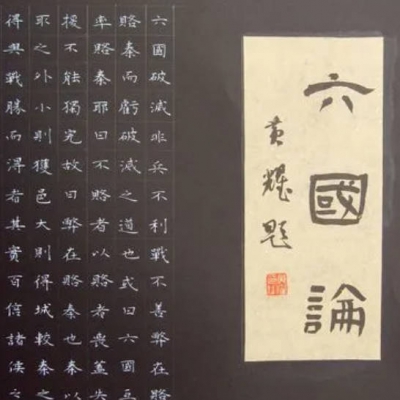 六國論
黄耀題
六國破滅非兵不利戰不善弊在賂
賂秦而虧破滅之道也或曰六國互
率賂秦耶曰不賂者以賂者喪蓋失
援不能獨完故曰弊在賂秦也秦以
取之外小則獲邑大則得城較秦之
得與戰勝而得者其實百倍諸侯之